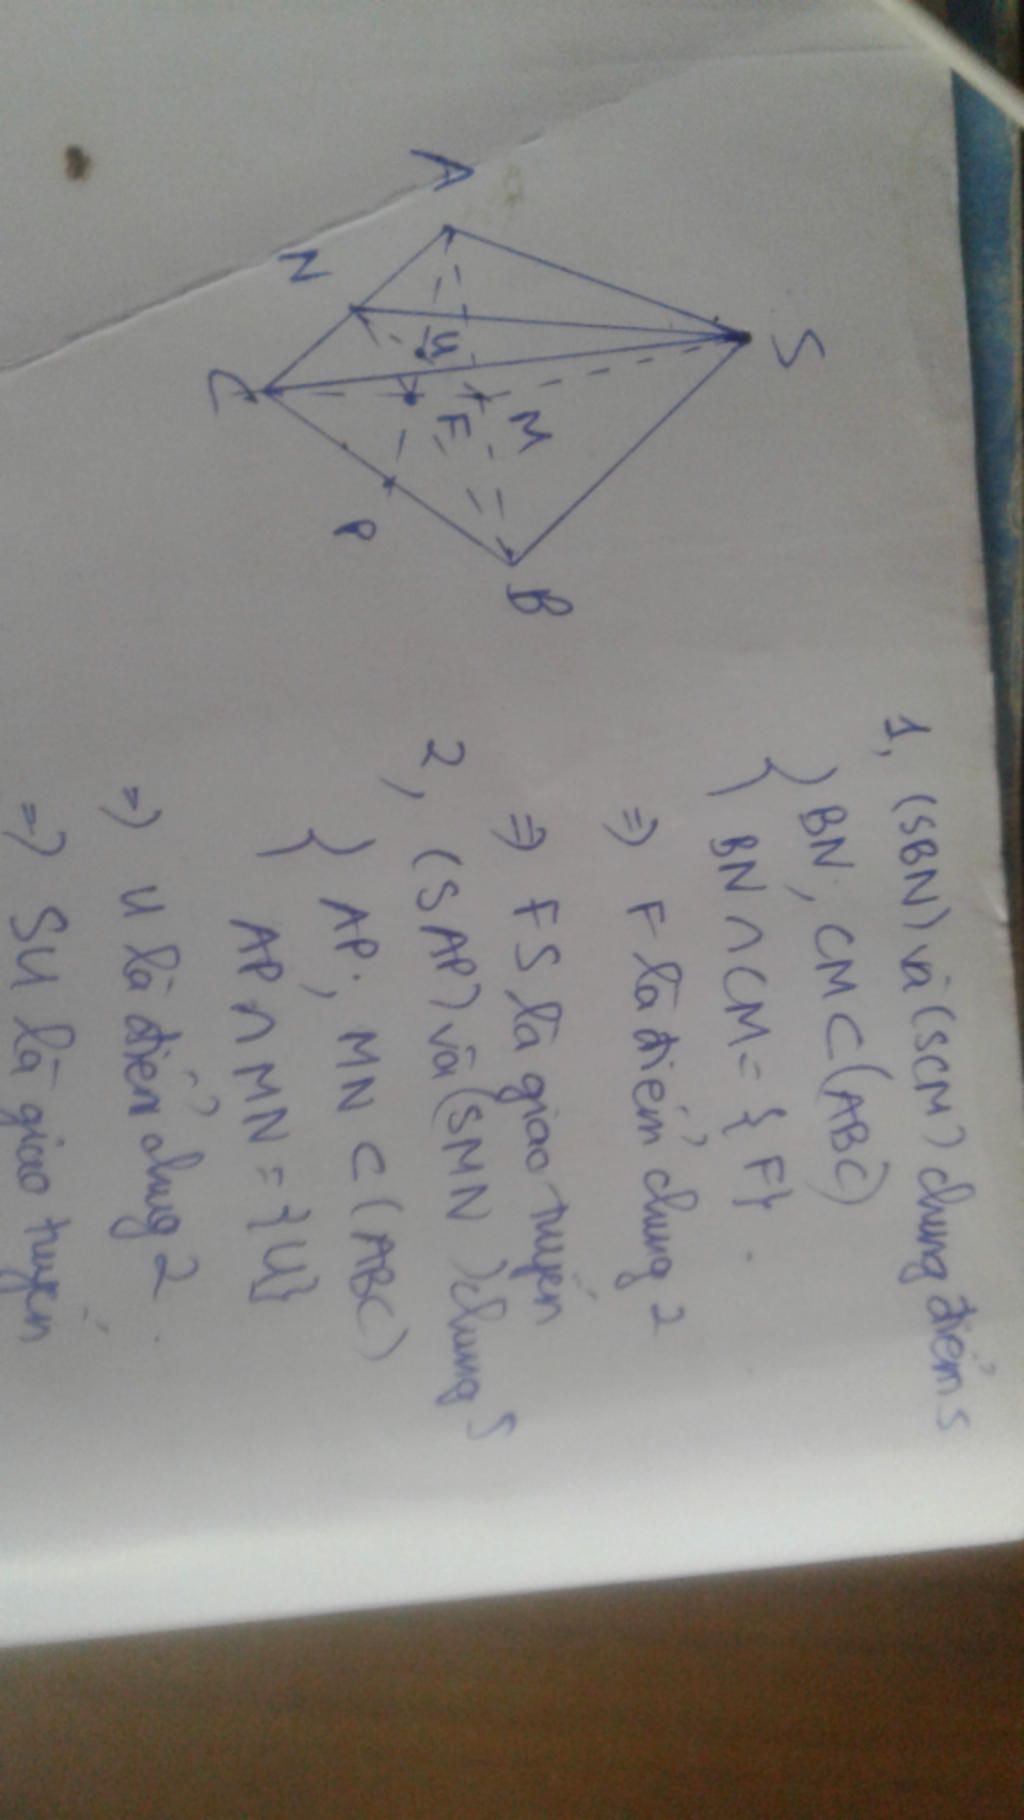 S
A
N
U
M
F
C
P
B
1, (SBN) và (SCM) chung điểm S
} BN, CM ⊂ (ABC)
} BN ∩ CM = { F} .
=) F là điểm chung 2
=) FS là giao tuyến
2, (SAP) và (SMN) chung S
} AP; MN ⊂ (ABC)
} AP ∩ MN = {U}
=) U là điểm chung 2
=) SU là giao tuyến